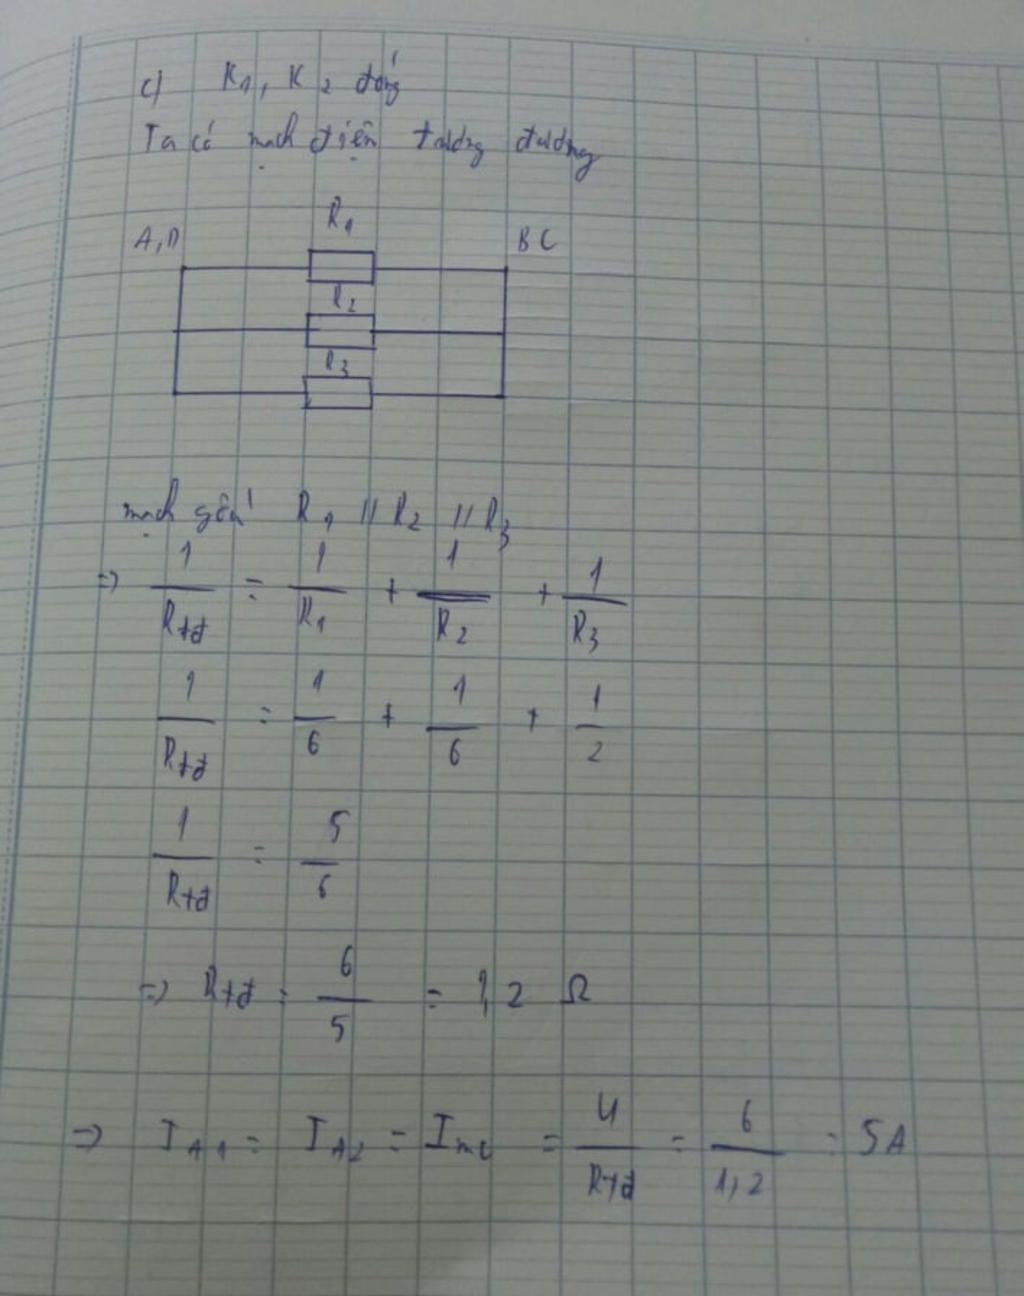 c) K1, K2 đóng
Ta có mạch điện tương đương
R1
A,D BC
R2
R3
mạch gồm R1 // R2 // R3
=> 1/Rtđ = 1/R1 + 1/R2 + 1/R3
1/Rtđ = 1/6 + 1/6 + 1/2
1/Rtđ = 5/6
=> Rtđ = 6/5 = 1,2 Ω
=> IA1 = IA2 = Imc = U/Rtđ = 6/1,2 = 5A